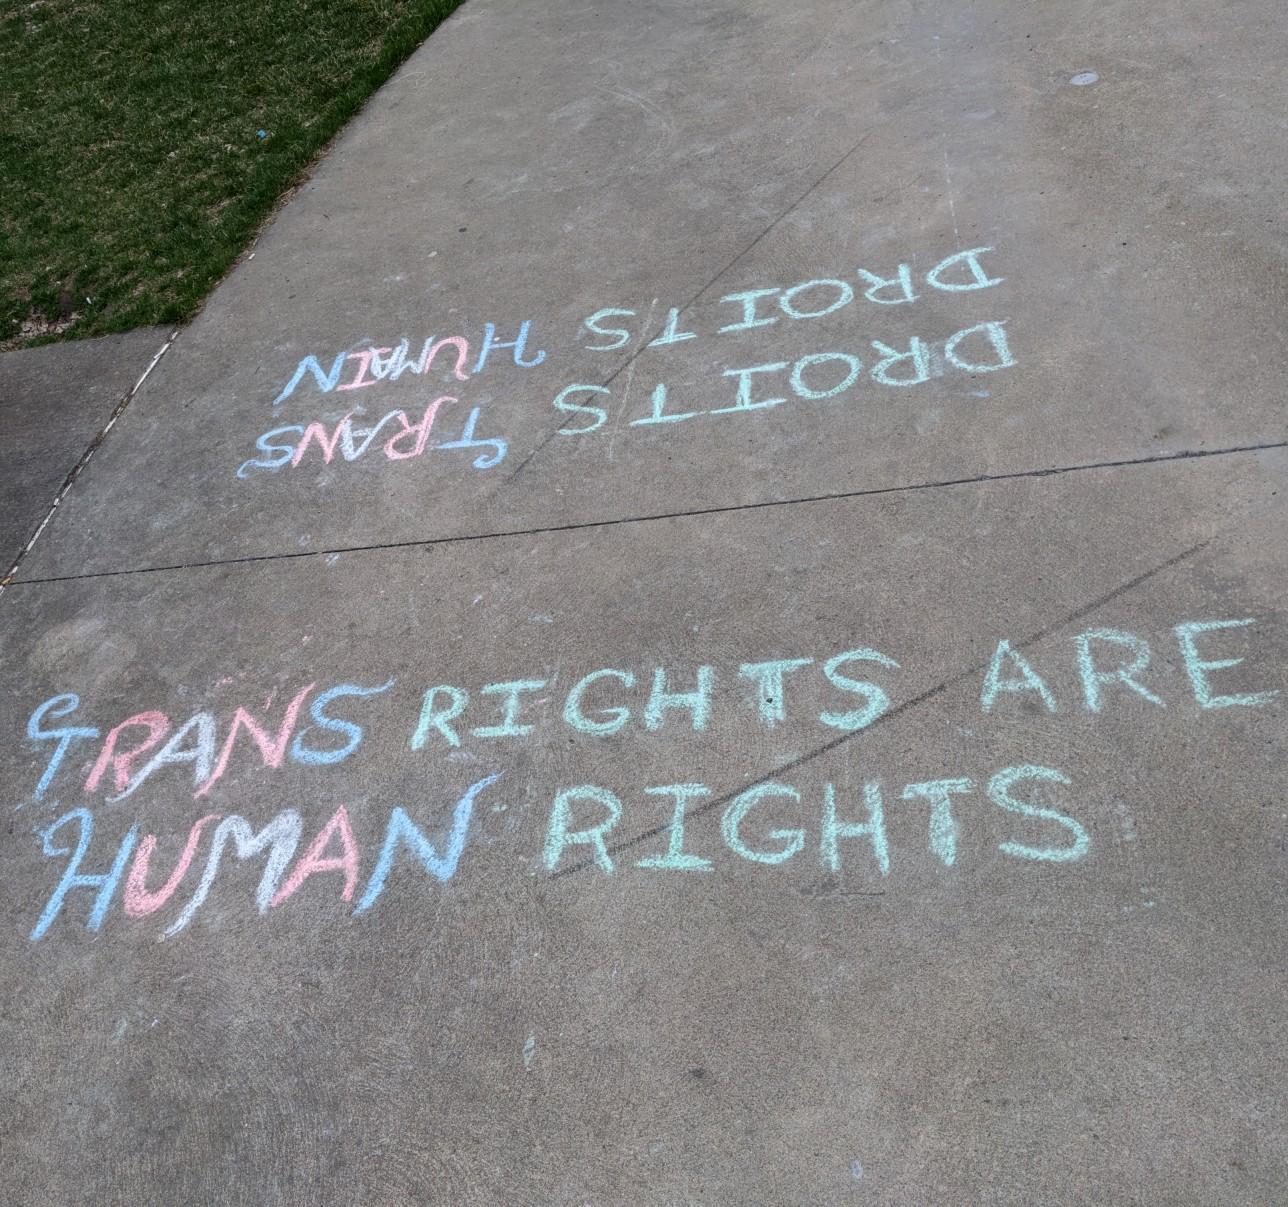 DROITS TRANS
DROITS HUMAIN
TRANS RIGHTS ARE
HUMAN RIGHTS